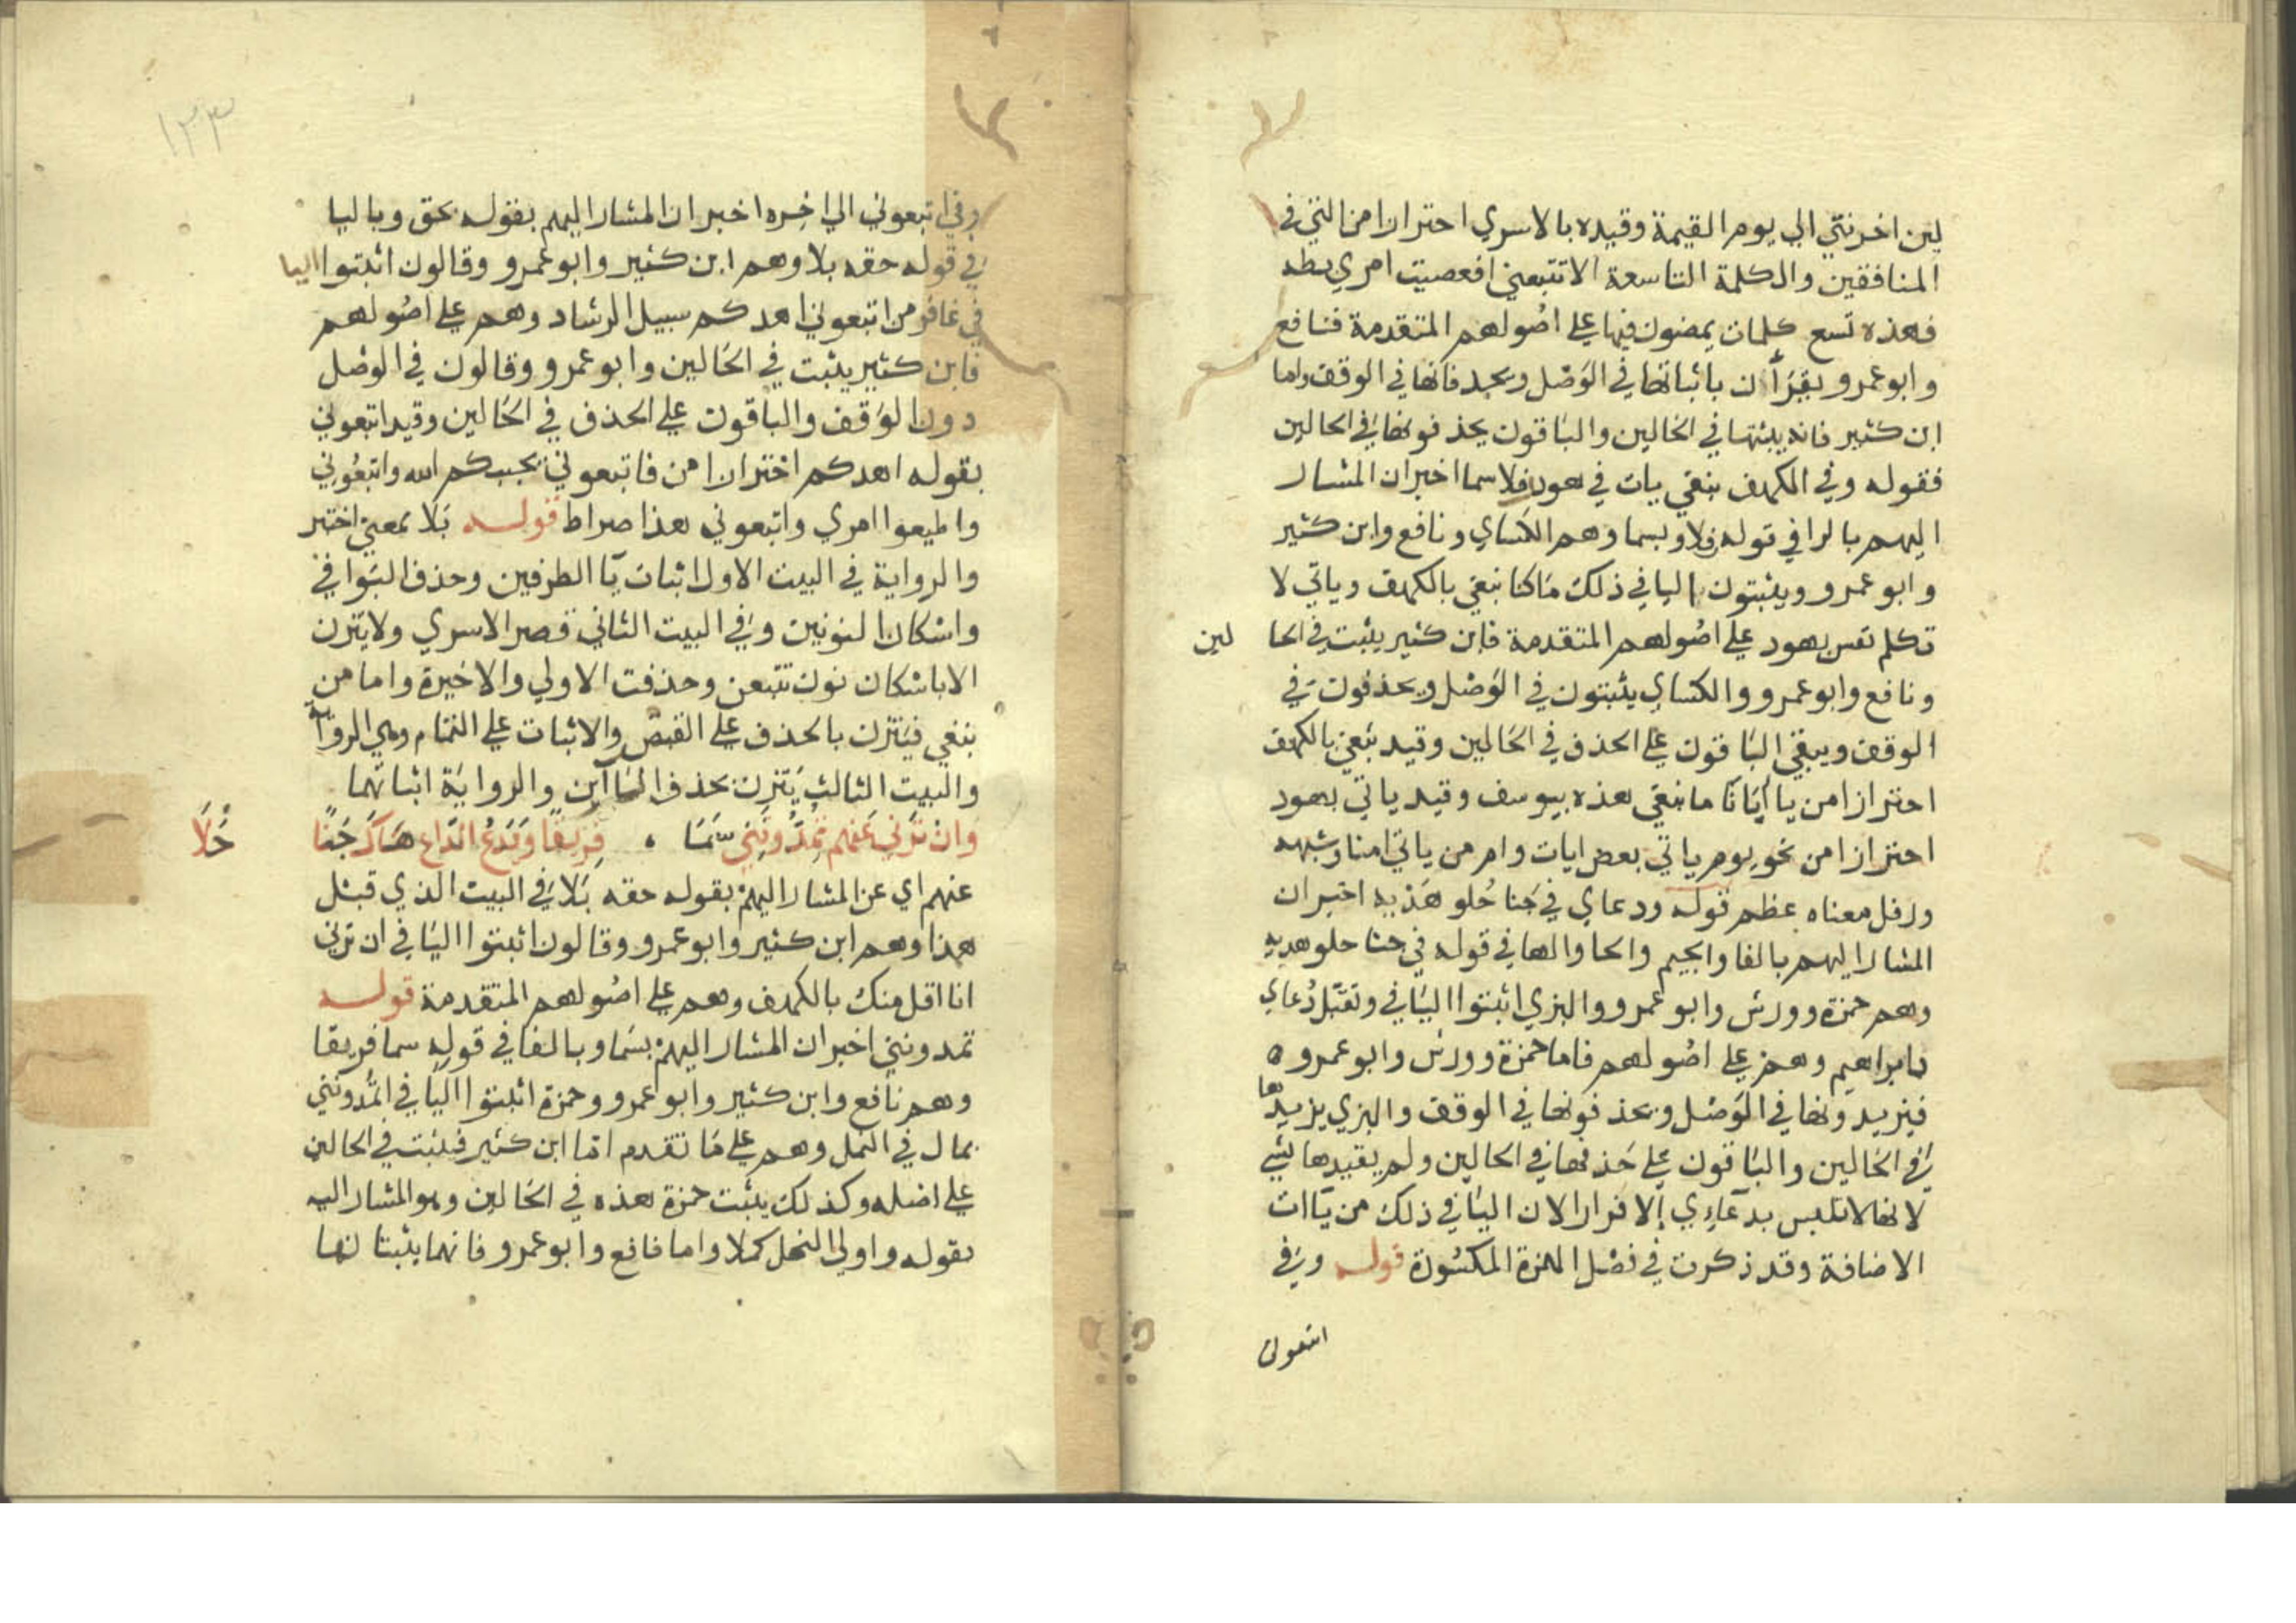 لين اخرتني الي يوم القيمة وقيده بالاسري احترازا من التي في
المنافقين والكلمة التاسعة الا تتبعني افعصيت امري بطه
فهذه تسع كلمات يمضون فيها علي اصُولهم المتقدمة فنافع
وابو عمرو يقرَأن باثباتها في الوَصْل وبحذفانها في الوقف واما
ابن كثير فانه يبثتها في الحَالين والبَاقون يحذفونها في الحالين
فقوله وفي الكهف نبغي يات في هود رفلا سما اخبر ان المشار
اليهم بالرا في قوله رفلا وبسما وهم الكسَاي ونافع وابن كثير
وابو عمرو ويثبتون اليا في ذلك مَا كنا نبغي بالكهف وياتي لا
تكلم نفس بهود علي اصُولهم المتقدمة فابن كثير يثبت في الحا لين
ونافع وابو عمرو والكسَاي يثبتون في الوَصْل ويحذفون في
الوقف ويبقي البَاقون علي الحذف في الحَالين وقيد نبغي بالكهف
احترازا من يا أبَانَا ما نبغي هذه بيوسف وقيد ياتي بهود
احترازا من نحو يوم ياتي بعض ايات وام من ياتي امنا وشبهه
ورفل معناه عظم قوله ودعاي في جَنا حُلو هَدْيه اخبر ان
المشار اليهم بالفا والجيم والحا والها في قوله في جنا حلو هديه
وهم حمزة وورش وابو عمرو والبزي اثبتوا اليَا في وتقبّل دُعاي
بابراهيم وهم علي اصُولهم فاما حمزة وورش وابو عمرو ه
فيزيدونها في الوَصْل ويحذفونها في الوقف والبزي يزيدها
في الحَالين والبَاقون علي حَذفها في الحالين ولم يقيدها بشي
لانها لا تلبس بدعَآءِي إلا فرارا لان اليَا في ذلك من يَآات
الاضافة وقد ذكرت في فصْل الهمزة المكسُورة قوله وفي
اتبعون
١٣٣
وفي اتبعوني الي اخره اخبر ان المشار اليهم بقوله بحق وباليا
في قوله حقه بلا وهم ابن كثير وابو عمرو وقالون اثبتوا اليا
في غافر من اتبعوني اهدكم سبيل الرشاد وهم علي اصُولهم
فابن كثير يثبت في الحَالين وابو عمرو وقالون في الوصْل
دون الوَقف والباقون علي الحذف في الحَالين وقيد اتبعوني
بقوله اهدكم احترازا من فاتبعوني يحببكم الله واتبعُوني
واطيعوا امري واتبعوني هذا صراط قوله بَلا بمعني اختبر
والرواية في البيت الاول اثبات يَا الطرفين وحذف البَواقي
واسْكان النونين وفي البيت الثاني قصر الاسري ولا يتزن
الا باسْكان نون تتبعن وحذفت الاولي والاخيرة واما من
نبغي فيَتزن بالحذف علي القبض والاثبات علي التمام وهي الرواية
والبيت الثالث يَتزن بحذف اليَاآين والروايَة اثباتهما
وَانْ تَرَني عَنهُم تُمِدُّونَنِي سَمَا ، فَرِيقًا وَيَدْعُ الدَّاعِ هَاكَ جَنًا حُلَا
عنهم اي عن المشار اليهم بقوله حقه بَلا في البيت الذي قبْل
هذا وهم ابن كثير وابو عمرو وقالون اثبتوا اليَا في ان ترني
انا اقل منك بالكهف وهم علي اصُولهم المتقدمة قوله
تمدونني اخبر ان المشار اليهم بسَما وبالفا في قوله سما فريقا
وهم نافع وابن كثير وابو عمرو وحمزة اثبتوا اليَا في اتُمدونني
بمال في النمل وهم علي مَا تقدم امّا ابن كثير فيثبت في الحالين
علي اصْله وكذلك يثبت حمزة هذه في الحَالين وهو المشار اليه
بقوله واولي النمل كملا واما نافع وابو عمرو فانهما يثبتانها